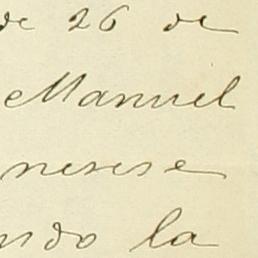 de 26 de
Manuel
nerse
ndo la